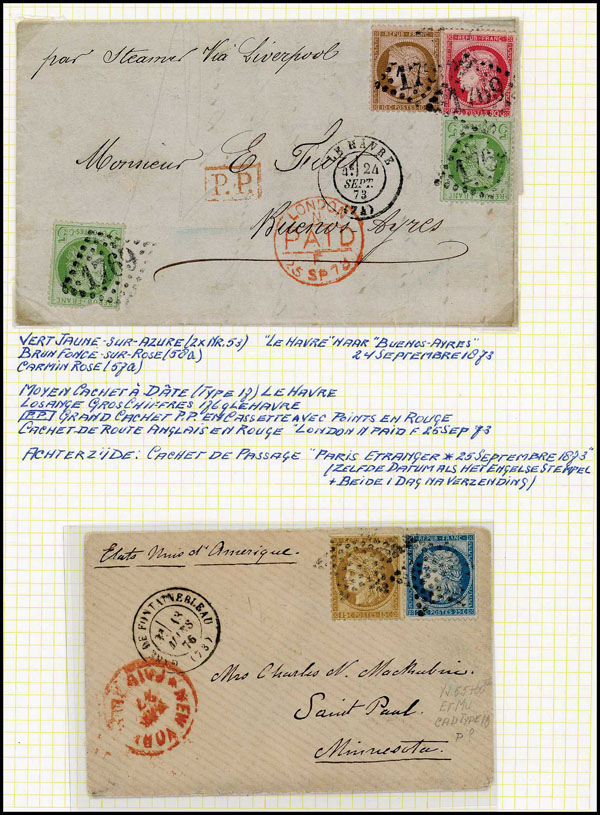 par Steamer Via Liverpool
REPUB · FRANC
10·C·POSTES·10·C
REPUB · FRANC
POSTES
17
1769
176
Monsieur E
P.P.
LE HAVRE
24
SEPT.
73
(74)
LONDON
PAID
25 SP 73
Buenos Ayres
1769
VERT JAUNE-SUR-AZURE (2X NR. 53) "LE HAVRE" NAAR "BUENOS-AYRES"
BRUN FONCE-SUR-ROSE (58a) 24 SEPTEMBRE 1873
CARMIN ROSE (57a)
MOYEN CACHET À DÂTE (TYPE 17) LE HAVRE
LOSANGE GROS CHIFFRES 1769 LE HAVRE
P.P. GRAND CACHET P.P. EN CASSETTE AVEC POINTS EN ROUGE
CACHET DE ROUTE ANGLAIS EN ROUGE "LONDON N PAID F 25 SEP 73
ACHTERZIJDE: CACHET DE PASSAGE "PARIS ETRANGER * 25 SEPTEMBRE 1873"
(ZELFDE DATUM ALS HET ENGELSE STEMPEL
+ BEIDE 1 DAG NA VERZENDING)
Etats Unis d'Amerique.
REPUB · FRANC
15·C·POSTES·15·C
REPUB · FRANC
25·C·POSTES·25·C
DE FONTAINEBLEAU
18
MARS
76
(73)
NEW YORK
Mrs Charles N. Mackubin.
Saint Paul.
Minnesota.